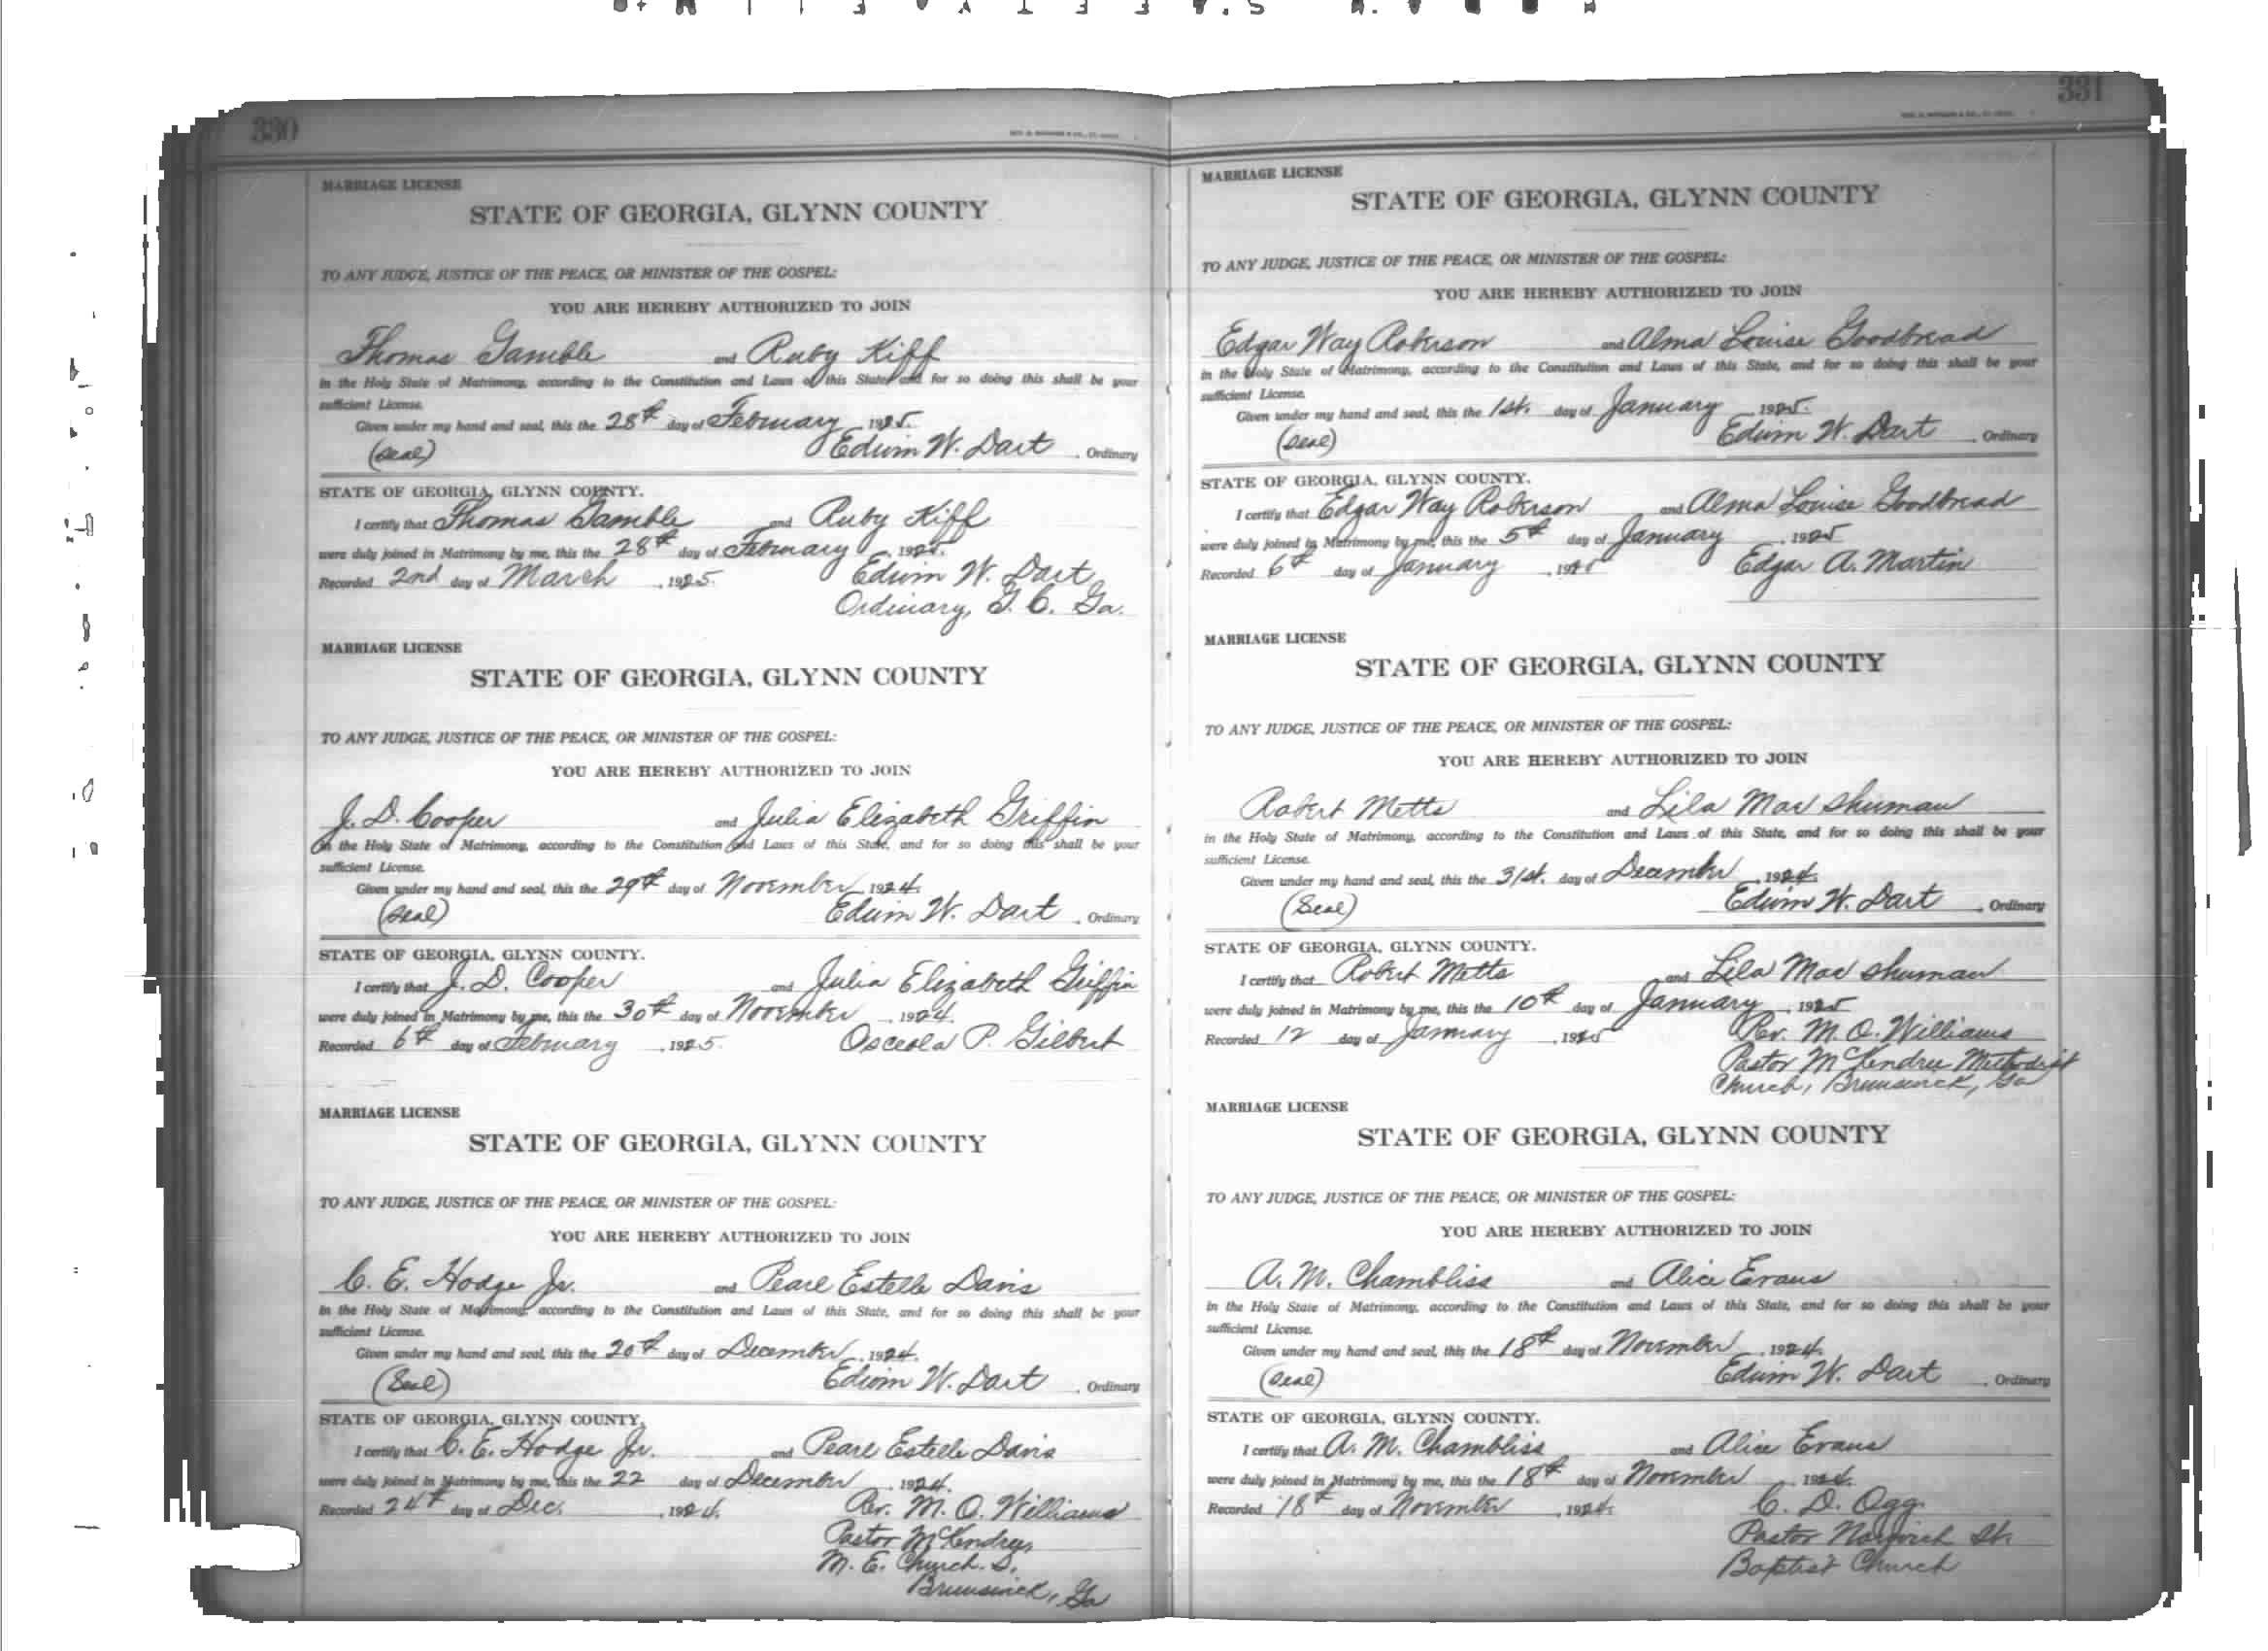 330
MARRIAGE LICENSE
STATE OF GEORGIA, GLYNN COUNTY
TO ANY JUDGE, JUSTICE OF THE PEACE, OR MINISTER OF THE GOSPEL:
YOU ARE HEREBY AUTHORIZED TO JOIN
Thomas Gamble and Ruby Kiff
in the Holy State of Matrimony, according to the Constitution and Laws of this State, and for so doing this shall be your
sufficient License.
Given under my hand and seal, this the 28th day of February, 1925.
(seal) Edwin W. Dart, Ordinary
STATE OF GEORGIA, GLYNN COUNTY.
I certify that Thomas Gamble and Ruby Kiff
were duly joined in Matrimony by me, this the 28th day of February, 1925.
Recorded 2nd day of March, 1925. Edwin W. Dart
Ordinary, G. C. Ga.
MARRIAGE LICENSE
STATE OF GEORGIA, GLYNN COUNTY
TO ANY JUDGE, JUSTICE OF THE PEACE, OR MINISTER OF THE GOSPEL:
YOU ARE HEREBY AUTHORIZED TO JOIN
J. D. Cooper and Julia Elizabeth Griffin
in the Holy State of Matrimony, according to the Constitution and Laws of this State, and for so doing this shall be your
sufficient License.
Given under my hand and seal, this the 29th day of November, 1924.
(seal) Edwin W. Dart, Ordinary
STATE OF GEORGIA, GLYNN COUNTY.
I certify that J. D. Cooper and Julia Elizabeth Griffin
were duly joined in Matrimony by me, this the 30th day of November, 1924.
Recorded 6th day of February, 1925. Osceola P. Gilbert
MARRIAGE LICENSE
STATE OF GEORGIA, GLYNN COUNTY
TO ANY JUDGE, JUSTICE OF THE PEACE, OR MINISTER OF THE GOSPEL:
YOU ARE HEREBY AUTHORIZED TO JOIN
C. E. Hodge Jr. and Pearl Estelle Davis
in the Holy State of Matrimony, according to the Constitution and Laws of this State, and for so doing this shall be your
sufficient License.
Given under my hand and seal, this the 20th day of December, 1924.
(Seal) Edwin W. Dart, Ordinary
STATE OF GEORGIA, GLYNN COUNTY.
I certify that C. E. Hodge Jr. and Pearl Estelle Davis
were duly joined in Matrimony by me, this the 22 day of December, 1924.
Recorded 24th day of Dec., 1924. Rev. M. O. Williams
Pastor McKendree
M. E. Church. S.
Brunswick, Ga
331
MARRIAGE LICENSE
STATE OF GEORGIA, GLYNN COUNTY
TO ANY JUDGE, JUSTICE OF THE PEACE, OR MINISTER OF THE GOSPEL:
YOU ARE HEREBY AUTHORIZED TO JOIN
Edgar Way Roberson and Alma Louise Goodbread
in the Holy State of Matrimony, according to the Constitution and Laws of this State, and for so doing this shall be your
sufficient License.
Given under my hand and seal, this the 1st. day of January, 1925.
(seal) Edwin W. Dart, Ordinary
STATE OF GEORGIA, GLYNN COUNTY.
I certify that Edgar Way Roberson and Alma Louise Goodbread
were duly joined in Matrimony by me, this the 5th day of January, 1925
Recorded 6th day of January, 1925 Edgar A. Martin
MARRIAGE LICENSE
STATE OF GEORGIA, GLYNN COUNTY
TO ANY JUDGE, JUSTICE OF THE PEACE, OR MINISTER OF THE GOSPEL:
YOU ARE HEREBY AUTHORIZED TO JOIN
Robert Metts and Lila Mae Shuman
in the Holy State of Matrimony, according to the Constitution and Laws of this State, and for so doing this shall be your
sufficient License.
Given under my hand and seal, this the 31st. day of December, 1924.
(Seal) Edwin W. Dart, Ordinary
STATE OF GEORGIA, GLYNN COUNTY.
I certify that Robert Metts and Lila Mae Shuman
were duly joined in Matrimony by me, this the 10th day of January, 1925
Recorded 12 day of January, 1925 Rev. M. O. Williams
Pastor McKendree Methodist
Church, Brunswick, Ga
MARRIAGE LICENSE
STATE OF GEORGIA, GLYNN COUNTY
TO ANY JUDGE, JUSTICE OF THE PEACE, OR MINISTER OF THE GOSPEL:
YOU ARE HEREBY AUTHORIZED TO JOIN
A. M. Chambliss and Alice Evans
in the Holy State of Matrimony, according to the Constitution and Laws of this State, and for so doing this shall be your
sufficient License.
Given under my hand and seal, this the 18th day of November, 1924.
(seal) Edwin W. Dart, Ordinary
STATE OF GEORGIA, GLYNN COUNTY.
I certify that A. M. Chambliss and Alice Evans
were duly joined in Matrimony by me, this the 18th day of November, 1924.
Recorded 18th day of November, 1924. C. D. Ogg.
Pastor Norwich St.
Baptist Church